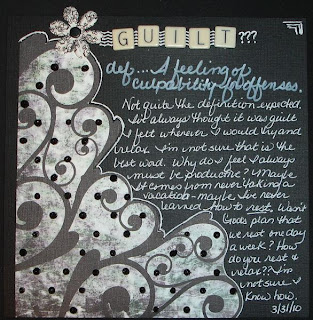 GUILT???
def.... A feeling of
culpability for offenses.
Not quite the definition expected.
I've always thought it was guilt
I felt whenever I would try and
relax. I'm not sure that is the
best word. Why do I feel I always
must be productive? Maybe
it comes from never taking a
vacation-maybe I've never
learned how to rest. Wasn't
God's plan that
we rest one day
a week? How
do you rest &
relax?? I'm
not sure I
know how.
3/31/10